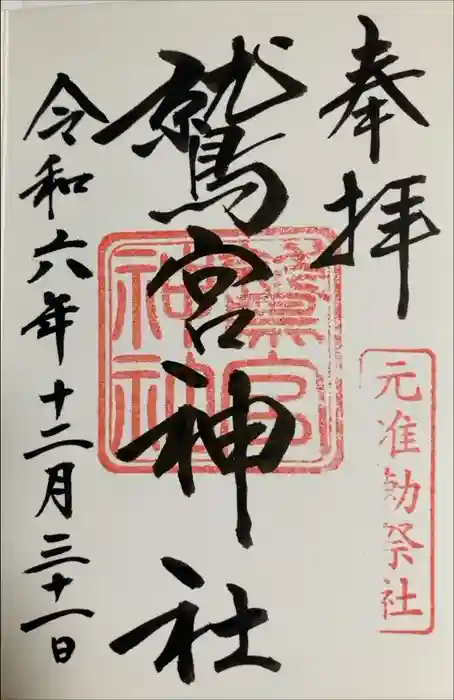 奉拝
元准勅祭社
鷲宮神社
鷲宮神社
令和六年十二月三十一日